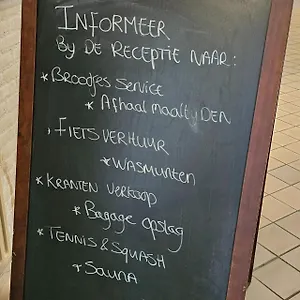 INFORMEER
By DE RECEPTIE NAAR:
* Broodjes Service
* Afhaal maaltyDEN
* FIETSVERHUUR
* WASMUNTEN
* KRANTEN VERKOOP
* Bagage opslag
* TENNIS & SQUASH
* Sauna